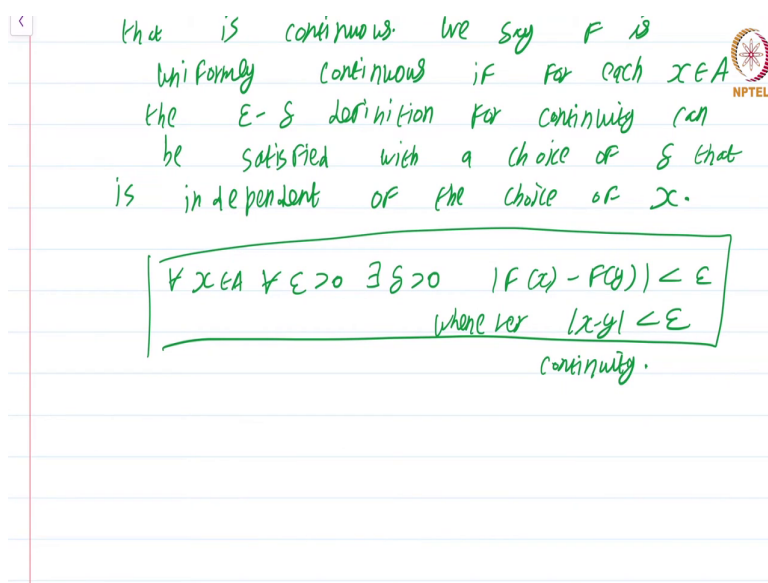 that is continuous. We say F is
uniformly continuous if for each x∈A
the ε-δ definition for continuity can
be satisfied with a choice of δ that
is independent of the choice of x.
∀ x∈A ∀ ε>0 ∃ δ>0 |F(x) - F(y)| < ε
whenever |x-y| < ε
continuity.
NPTEL